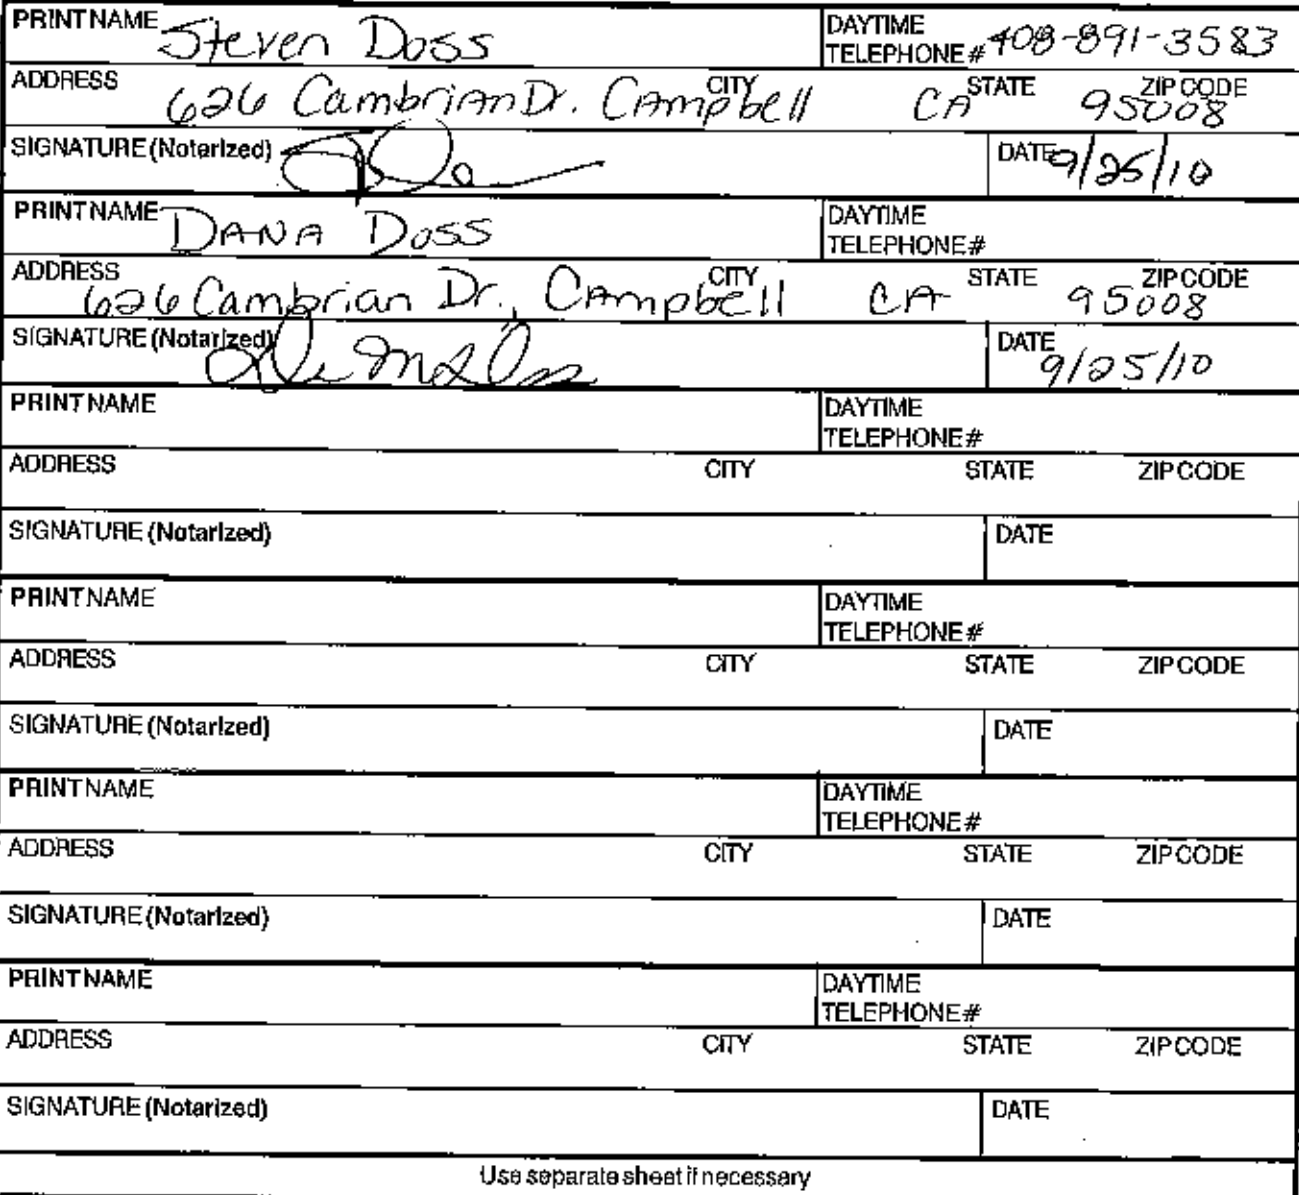 PRINT NAME Steven Doss DAYTIME TELEPHONE # 408-891-3583
ADDRESS CITY STATE ZIP CODE
626 Cambrian Dr. Campbell CA 95008
SIGNATURE (Notarized) DATE 9/25/10
PRINT NAME DANA DOSS DAYTIME TELEPHONE #
ADDRESS CITY STATE ZIP CODE
626 Cambrian Dr., Campbell CA 95008
SIGNATURE (Notarized) DATE 9/25/10
PRINT NAME DAYTIME TELEPHONE #
ADDRESS CITY STATE ZIP CODE
SIGNATURE (Notarized) DATE
PRINT NAME DAYTIME TELEPHONE #
ADDRESS CITY STATE ZIP CODE
SIGNATURE (Notarized) DATE
PRINT NAME DAYTIME TELEPHONE #
ADDRESS CITY STATE ZIP CODE
SIGNATURE (Notarized) DATE
PRINT NAME DAYTIME TELEPHONE #
ADDRESS CITY STATE ZIP CODE
SIGNATURE (Notarized) DATE
Use separate sheet if necessary